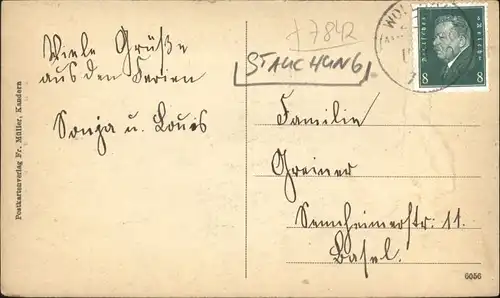 Viele Grüße
aus den Ferien
Sonja u. Louis
Postkartenverlag Fr. Müller, Kandern
+7842
STAUCHUNG
Familie
Greiner
Sennheimerstr. 11.
Basel.
6056
WO
Deutsches Reich
8 8